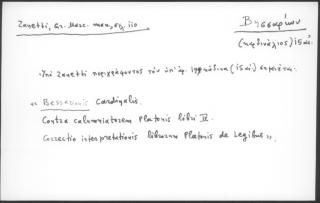 Zanetti, Gr. Marc. man., σχ. 110
Βησσαρίων
(καρδινάλιος) 15 αι.
Ὑπὸ Zanetti περιγράφοντος τὸν ὑπ' ἀρ. κώδικα (15 αι.) σημειοῦται.
«Bessarionis Cardinalis.
Contra calumniatorem Platonis libri IV.
Correctio interpretationis librorum Platonis de Legibus».